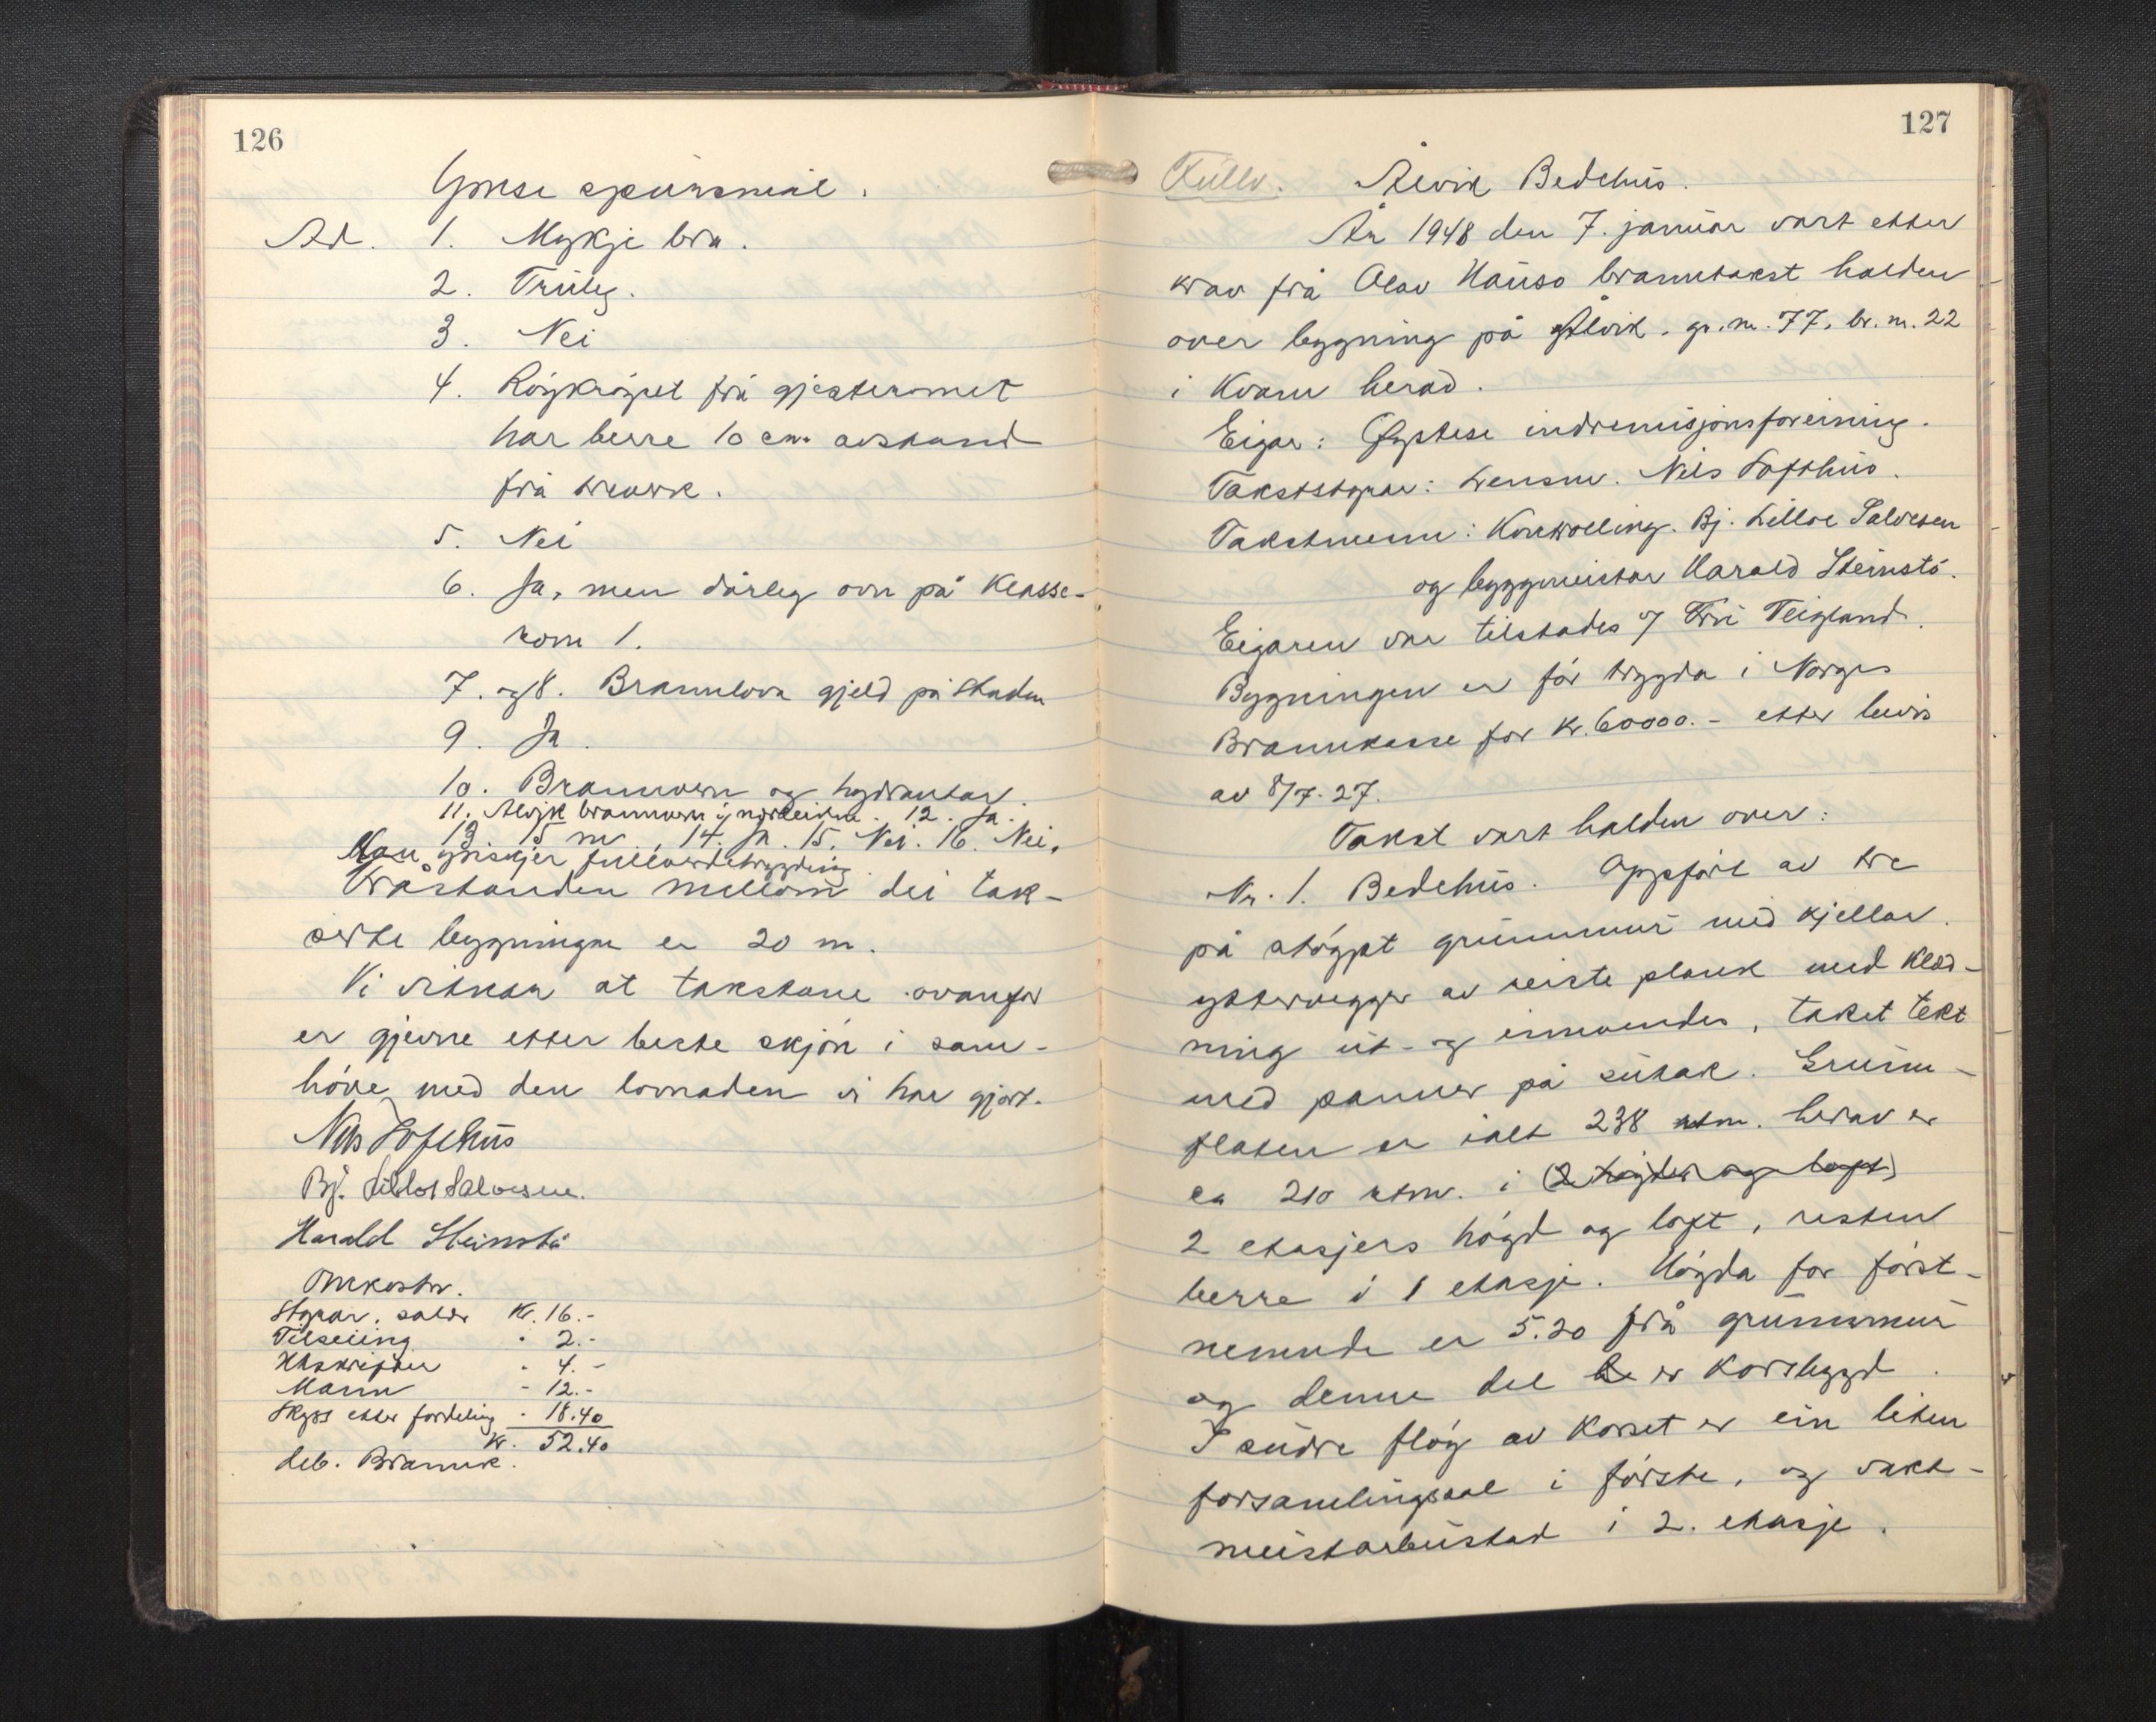 126
Ymse spursmål.
Ad. 1. Mykje bra.
2. Truleg.
3. Nei
4. Röykröyret frå gjesteromet
har berre 10 cm. avstand
frå treverk.
5. Nei
6. Ja, men dårleg ovn på Klasse-
rom 1.
7. og 8. Brannlova gjeld på staden
9. Ja.
10. Brannvern og hydrantar.
11. Ålvik brannvern i nærleiken. 12. Ja.
13. 15 m. 14. Ja. 15. Nei. 16. Nei.
Man ynskjer fullverdetrygding.
Fråstanden millom dei tak-
serte bygningar er 20 m.
Vi vitnar at takstane ovanfor
er gjevne etter beste skjön i sam-
höve med den lovnaden vi har gjort.
Nils Lofthus
Bj. Lilloe Salvesen.
Harald Steinstö
Omkostn.
Styrar, salär Kr. 16.-
Tilseiing " 2.-
Utskrifter " 4.-
Mann - 12.-
Skyss etter fordeling - 18.40
Kr. 52.40
deb. Brannk.
127
Fullv. Ålvik Bedehus.
År 1948 den 7. januar vart etter
krav frå Olav Hauso branntakst halden
over bygning på Ålvik. gr. nr. 77, br. nr. 22
i Kvam herad.
Eigar: Øystese indremisjonsforeining.
Takststyrar: Lensm. Nils Lofthus.
Takstmenn: Kontrolling. Bj. Lilloe Salvesen
og byggmeistar Harald Steinstö.
Eigaren var tilstades v/ Fru Teigland.
Bygningen er för trygda i Norges
Brannkasse for Kr. 60000.- etter bevis
av 8/7.27.
Takst vart halden over:
Nr. 1. Bedehus. Oppfört av tre
på stöypt grunnmur med kjellar.
yttervegger av reiste plank med Kled-
ning ut- og innvendes, taket tekt
med panner på sutak. Grunn-
flaten er ialt 238 kvm. herav er
ca 210 kvm. i (2 högder og loft)
2 etasjers högd og loft, resten
berre i 1 etasje. Högda for först-
nemnde er 5.20 frå grunnmur
og denne del er korsbygd.
I södre flöy av Korset er ein liten
forsamlingssal i förste, og vakt-
meistarbustad i 2. etasje.